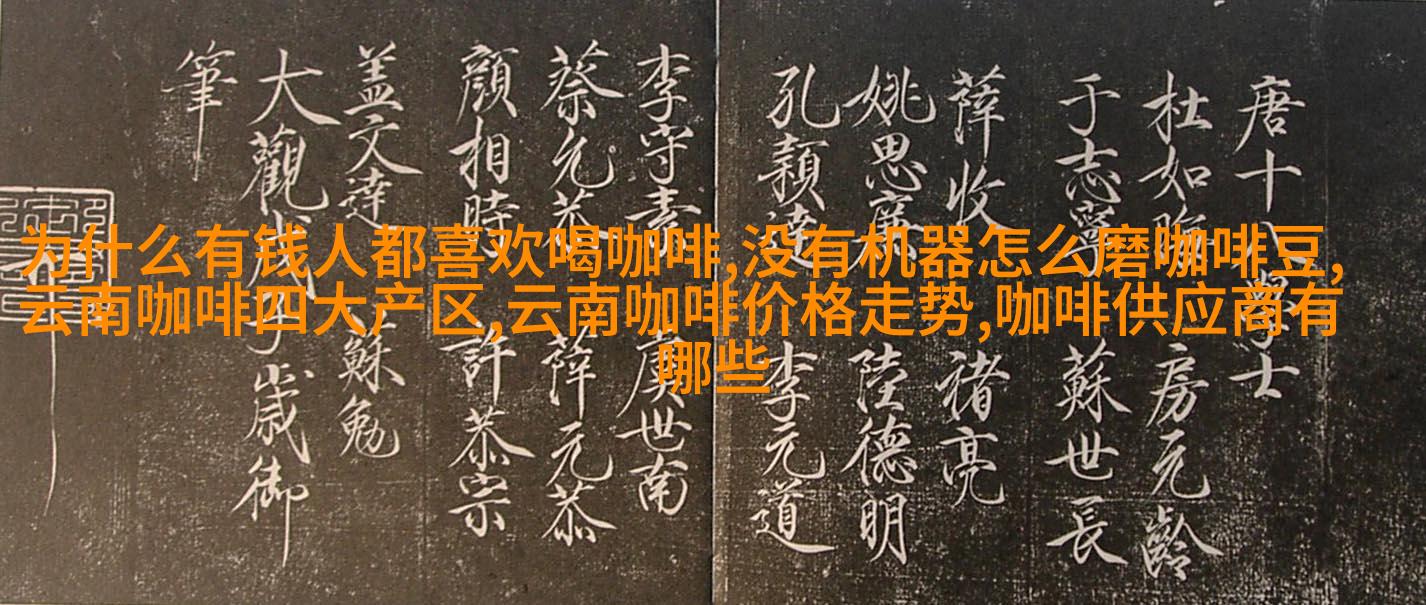 为什么有钱人都喜欢喝咖啡,没有机器怎么磨咖啡豆,
云南咖啡四大产区,云南咖啡价格走势,咖啡供应商有
哪些
唐十八學士
杜如晦 房元齡
于志寧 蘇世長
薛收 褚亮
姚思廉 陸德明
孔穎達 李元道
李守素 虞世南
蔡允恭 薛元
顏相時 許恭宗
盖文達 蘇勉
大觀戊子歲御
筆